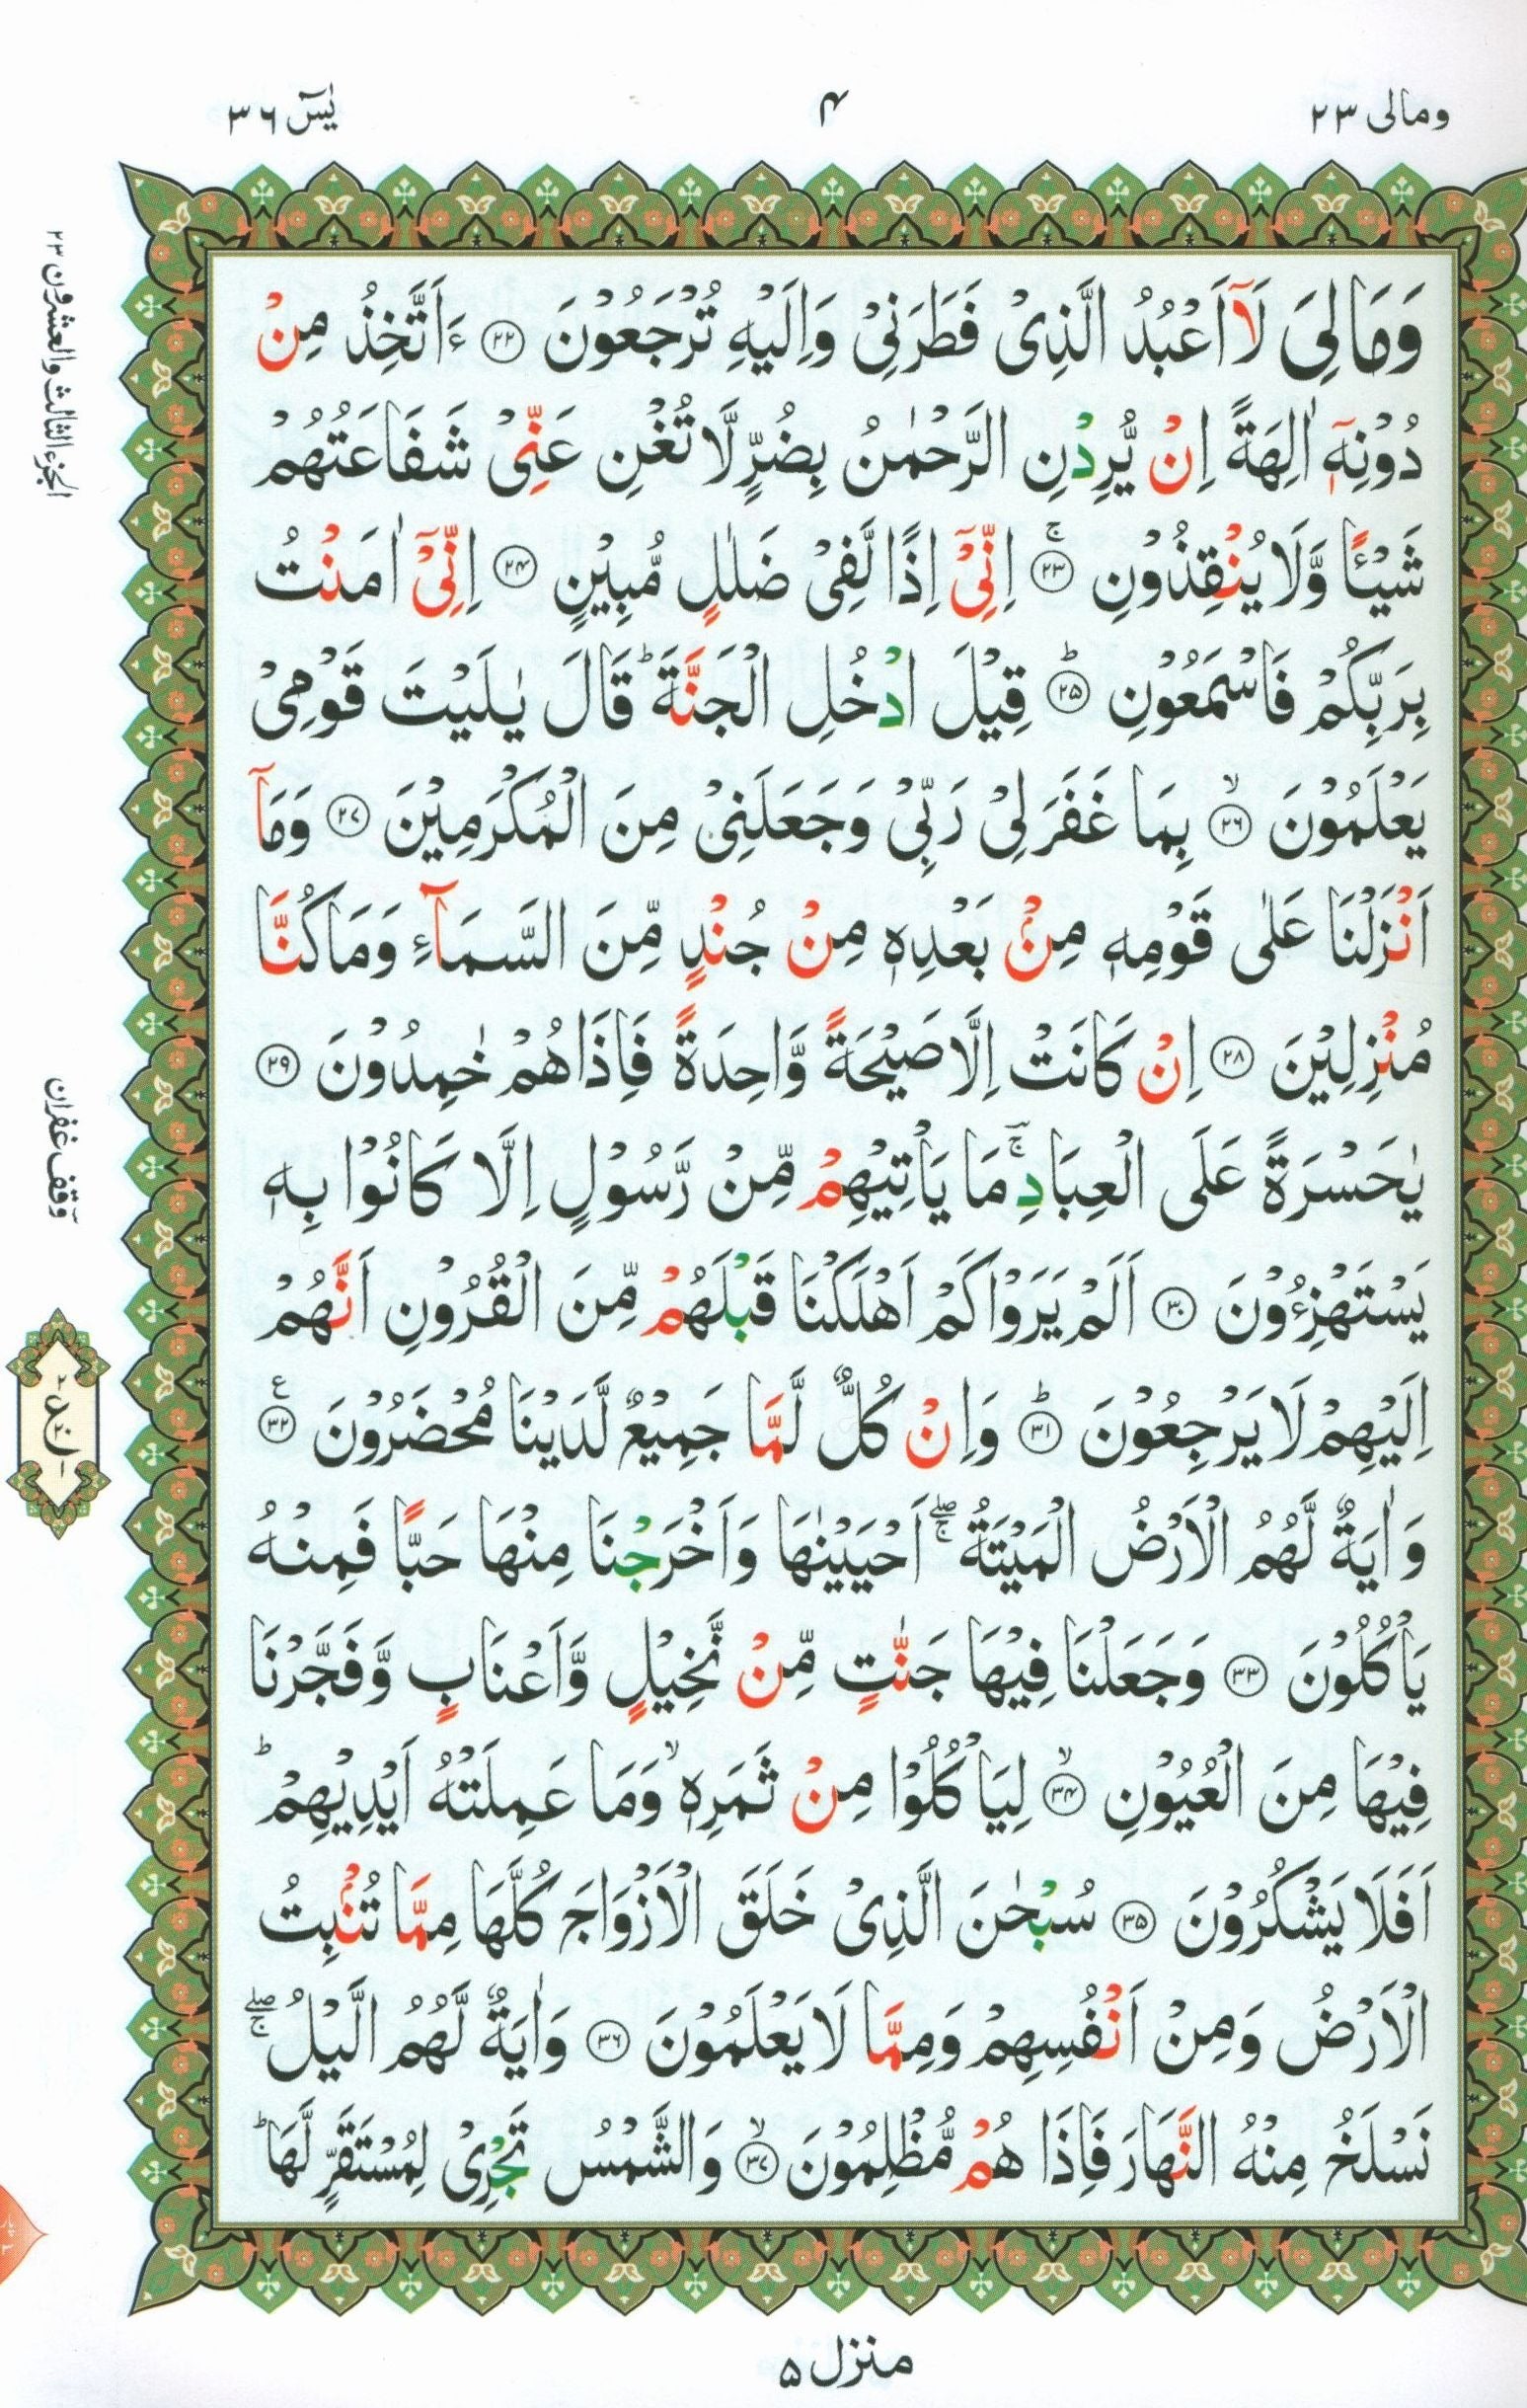 ومالی ٢٣
٤
يٰسٓ ٣٦
وَمَالِیَ لَاۤ اَعْبُدُ الَّذِیْ فَطَرَنِیْ وَاِلَیْهِ تُرْجَعُوْنَ ﴿٢٢﴾ ءَاَتَّخِذُ مِنْ
دُوْنِهٖۤ اٰلِهَةً اِنْ یُّرِدْنِ الرَّحْمٰنُ بِضُرٍّ لَّا تُغْنِ عَنِّیْ شَفَاعَتُهُمْ
شَیْـًٔا وَّلَا یُنْقِذُوْنِ ۚ﴿٢٣﴾ اِنِّیْۤ اِذًا لَّفِیْ ضَلٰلٍ مُّبِیْنٍ ﴿٢٤﴾ اِنِّیْۤ اٰمَنْتُ
بِرَبِّكُمْ فَاسْمَعُوْنِ ؕ﴿٢٥﴾ قِیْلَ ادْخُلِ الْجَنَّةَ ؕ قَالَ یٰلَیْتَ قَوْمِیْ
یَعْلَمُوْنَ ۙ﴿٢٦﴾ بِمَا غَفَرَلِیْ رَبِّیْ وَجَعَلَنِیْ مِنَ الْمُكْرَمِیْنَ ﴿٢٧﴾ وَمَاۤ
اَنْزَلْنَا عَلٰی قَوْمِهٖ مِنْۢ بَعْدِهٖ مِنْ جُنْدٍ مِّنَ السَّمَآءِ وَمَا كُنَّا
مُنْزِلِیْنَ ﴿٢٨﴾ اِنْ كَانَتْ اِلَّا صَیْحَةً وَّاحِدَةً فَاِذَا هُمْ خٰمِدُوْنَ ﴿٢٩﴾
یٰحَسْرَةً عَلَی الْعِبَادِ ۣۚ مَا یَاْتِیْهِمْ مِّنْ رَّسُوْلٍ اِلَّا كَانُوْا بِهٖ
یَسْتَهْزِءُوْنَ ﴿٣٠﴾ اَلَمْ یَرَوْا كَمْ اَهْلَكْنَا قَبْلَهُمْ مِّنَ الْقُرُوْنِ اَنَّهُمْ
اِلَیْهِمْ لَا یَرْجِعُوْنَ ؕ﴿٣١﴾ وَاِنْ كُلٌّ لَّمَّا جَمِیْعٌ لَّدَیْنَا مُحْضَرُوْنَ ﴿٣٢﴾ ع
وَاٰیَةٌ لَّهُمُ الْاَرْضُ الْمَیْتَةُ ۖۚ اَحْیَیْنٰهَا وَاَخْرَجْنَا مِنْهَا حَبًّا فَمِنْهُ
یَاْكُلُوْنَ ﴿٣٣﴾ وَجَعَلْنَا فِیْهَا جَنّٰتٍ مِّنْ نَّخِیْلٍ وَّاَعْنَابٍ وَّفَجَّرْنَا
فِیْهَا مِنَ الْعُیُوْنِ ۙ﴿٣٤﴾ لِیَاْكُلُوْا مِنْ ثَمَرِهٖ ۙ وَمَا عَمِلَتْهُ اَیْدِیْهِمْ ؕ
اَفَلَا یَشْكُرُوْنَ ﴿٣٥﴾ سُبْحٰنَ الَّذِیْ خَلَقَ الْاَزْوَاجَ كُلَّهَا مِمَّا تُنْۢبِتُ
الْاَرْضُ وَمِنْ اَنْفُسِهِمْ وَمِمَّا لَا یَعْلَمُوْنَ ﴿٣٦﴾ وَاٰیَةٌ لَّهُمُ الَّیْلُ ۖۚ
نَسْلَخُ مِنْهُ النَّهَارَ فَاِذَا هُمْ مُّظْلِمُوْنَ ۙ﴿٣٧﴾ وَالشَّمْسُ تَجْرِیْ لِمُسْتَقَرٍّ لَّهَا ؕ
الجزء الثالث والعشرون ٢٣
وقف غفران
منزل ٥